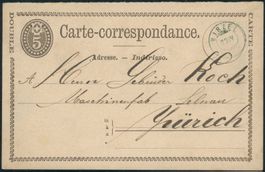 Carte-correspondance.
5
Adresse. — Indirizzo.
A Herren Gebrüder Koch
Maschinenfab Selnau
Zürich
CARTE